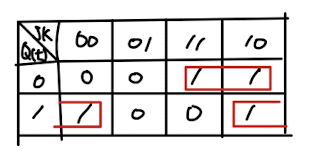 JK
Q(t) 00 01 11 10
0 0 0 1 1
1 1 0 0 1